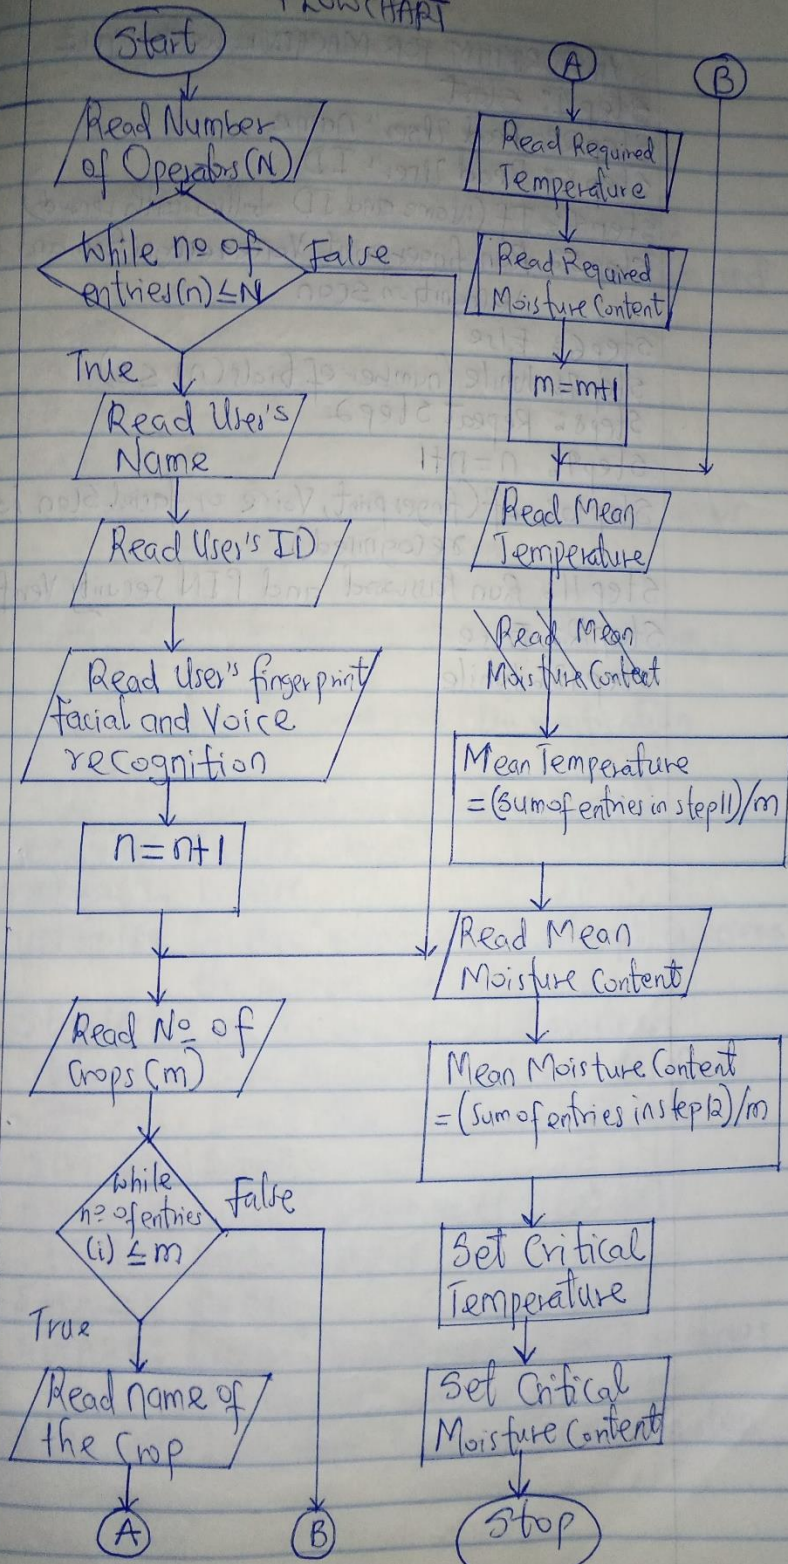 FLOWCHART
Start
Read Number
of Operators (N)
While no of
entries(n) ≤ N
False
True
Read User's
Name
Read User's ID
Read User's fingerprint
facial and Voice
recognition
n = n+1
Read No of
Crops (m)
While
no of entries
(i) ≤ m
False
True
Read name of
the Crop
A
B
A
B
Read Required
Temperature
Read Required
Moisture Content
m = m+1
Read Mean
Temperature
Read Mean
Moisture Content
Mean Temperature
= (Sum of entries in step 11)/m
Read Mean
Moisture Content
Mean Moisture Content
= (Sum of entries in step 12)/m
Set Critical
Temperature
Set Critical
Moisture Content
Stop